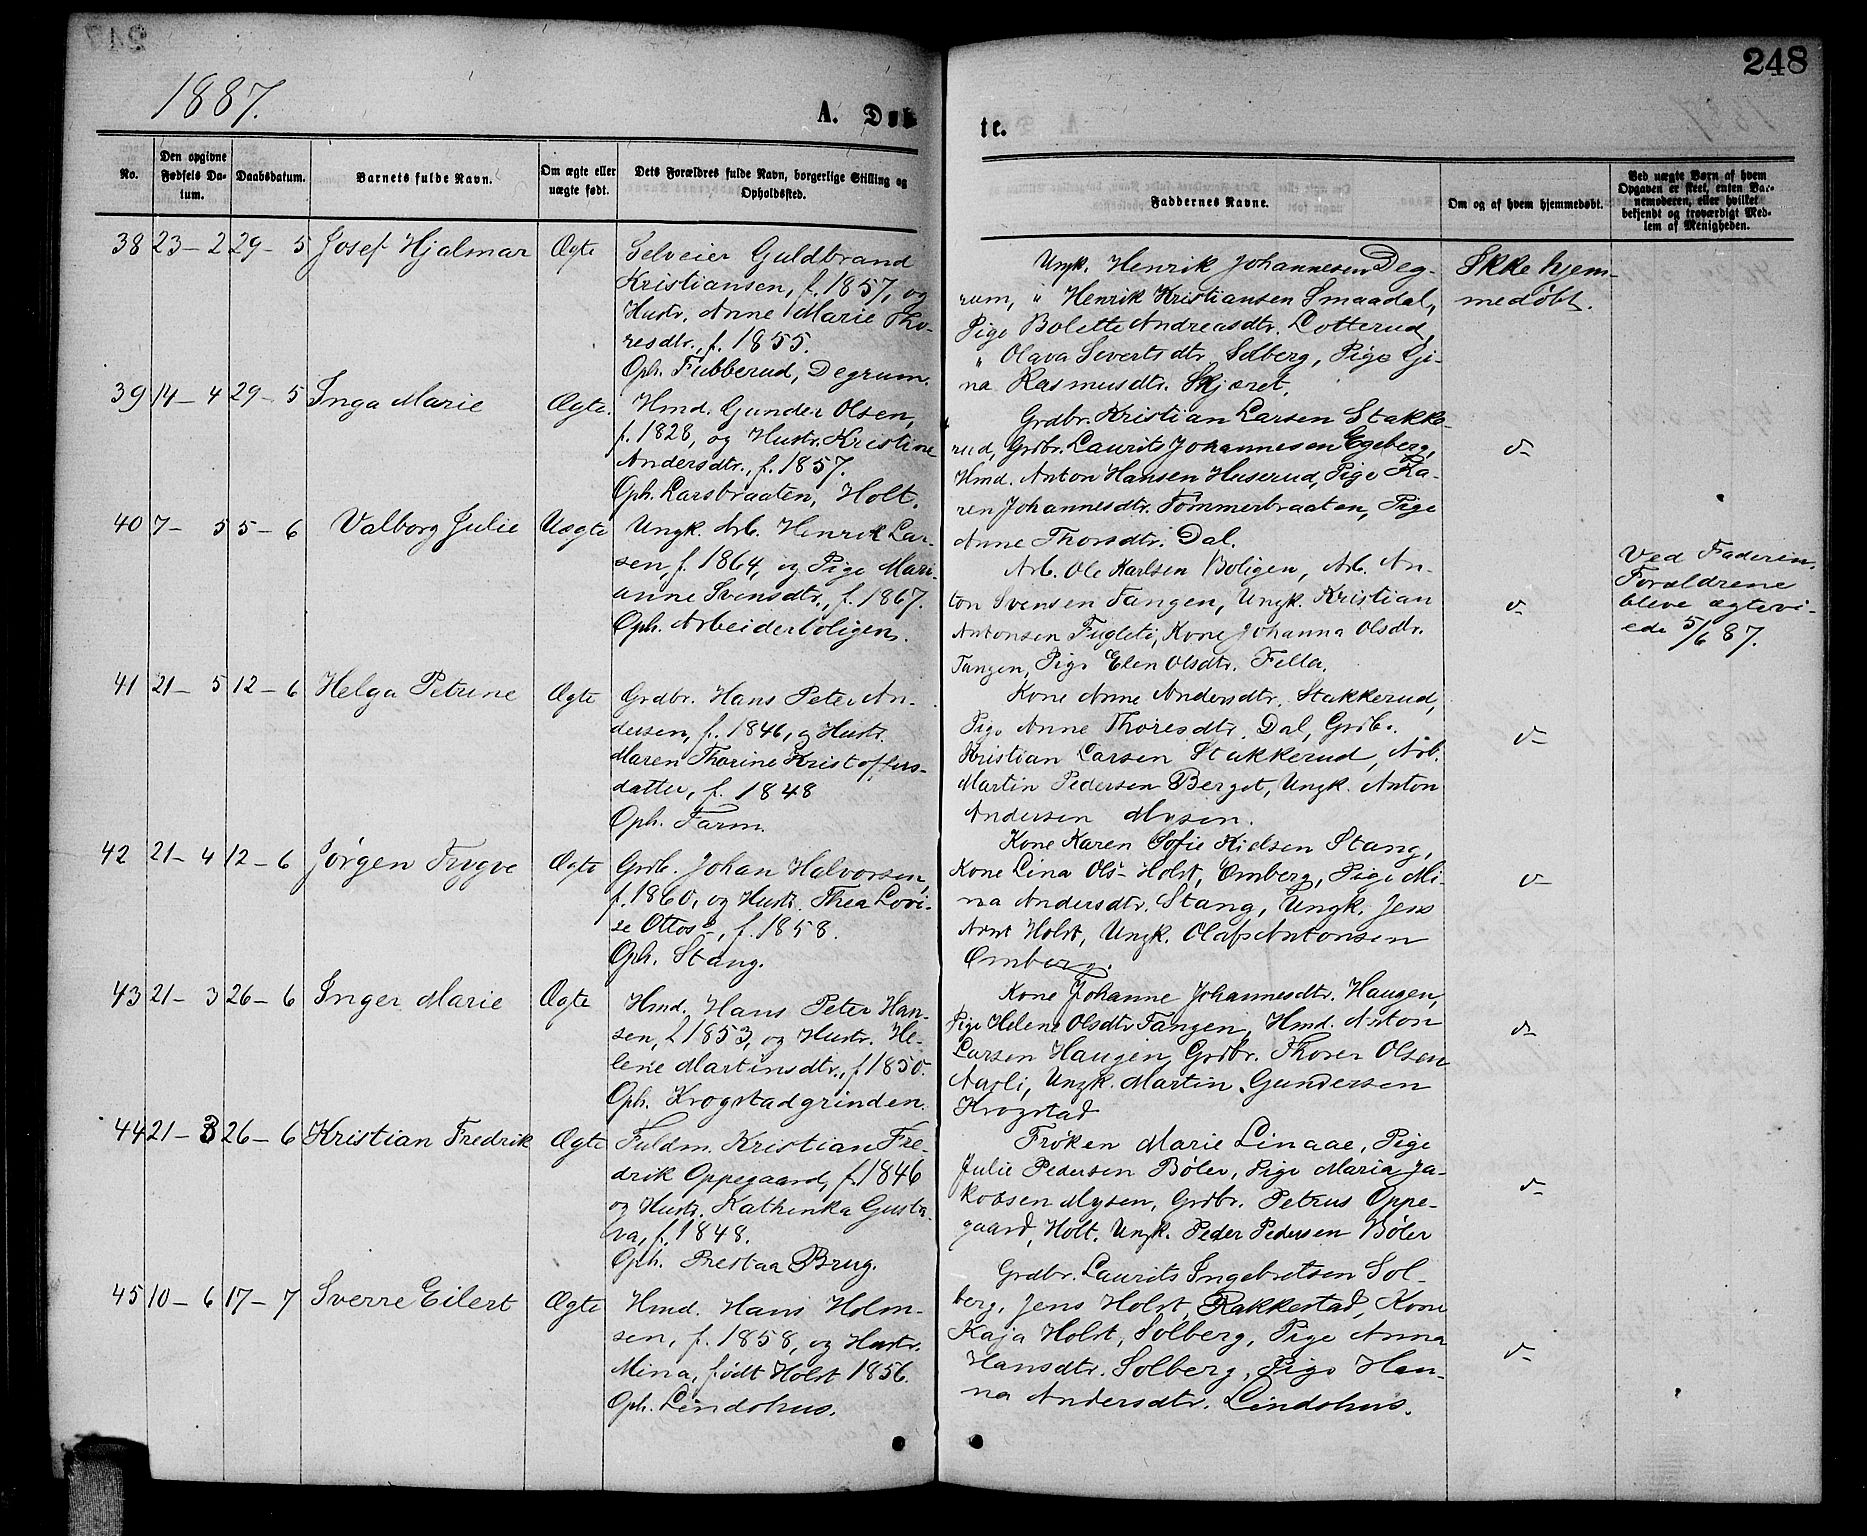 248
1887.
A. Døbte.
No.
Den opgivne Fødsels Datum.
Daabsdatum.
Barnets fulde Navn.
Om ægte eller uægte født.
Dets Forældres fulde Navn, borgerlige Stilling og Opholdssted.
Faddernes Navne.
Om og af hvem hjemmedøbt.
Ved uægte Børn af hvem Opgaven er skeet, enten Barnemoderen, eller hvilket bekjendt og troværdigt Medlem af Menigheden.
38 23-2 29-5 Josef Hjalmar Ægte
Selveier Guldbrand
Kristiansen, f. 1857, og
Hustr. Anne Marie Tho-
resdtr., f. 1855.
Oph. Fubberud, Degrum.
Ungk. Henrik Johannesen Deg-
rum, " Henrik Kristiansen Smaadal,
Pige Bolette Andreasdtr. Lotterud,
" Olava Sivertsdtr. Solberg, Pige Gi-
na Rasmusdtr. Skjæret.
Ikke hjem-
medøbt.
39 14-4 29-5 Inga Marie Ægte.
Hmd. Gunder Olsen,
f. 1828, og Hustr. Kristine
Andersdtr., f. 1857.
Oph. Larsbraaten, Holt.
Grdbr. Kristian Larsen Stakke-
rud, Grdbr. Laurits Johannesen Egeberg,
Hmd. Anton Hansen Huserud, Pige Ka-
ren Johannesdtr. Tømmerbraaten, Pige
Anne Thorsdtr. Dal.
v-
40 7-5 5-6 Valborg Julie Uægte
Ungk. Arb. Henrik Lar-
sen, f. 1864, og Pige Mari-
anne Svensdtr., f. 1867.
Oph. Arbeiderboligen.
Arb. Ole Karlsen Boligen, Arb. An-
ton Svensen Tangen, Ungk. Kristian
Antonsen Fugleti, Kone Johanna Olsdtr.
Tangen, Pige Elen Olsdtr. Fella.
v-
Ved Faderen.
Forældrene
bleve ægtevi-
ede 5/6 87.
41 21-5 12-6 Helga Petrine Ægte
Grdbr. Hans Peter An-
dersen, f. 1846, og Hustr.
Maren Thorine Kristoffers-
datter, f. 1848
Oph. Farm.
Kone Anne Andersdtr. Stakkerud,
Pige Anne Thoresdtr. Dal, Grdb.
Kristian Larsen Stakkerud, Arb.
Martin Pedersen Berget, Ungk. Anton
Andersen Mysen.
v-
42 21-4 12-6 Jørgen Trygve Ægte
Grdb. Johan Halvorsen,
f. 1860, og Hustr. Thea Lovi-
se Ottos-, f. 1858.
Oph. Stang.
Kone Karen Sofie Nielsen Stang,
Kone Lina Ols- Holst, Omberg, Pige Mi-
na Andersdtr. Stang, Ungk. Jens
Arnt Holst, Ungk. Olaf Antonsen
Omberg.
v-
43 21-3 26-6 Inger Marie Ægte
Hmd. Hans Peter Han-
sen, f. 1853, og Hustr. He-
lene Martinsdtr., f. 1850.
Oph. Krogstadgrinden.
Kone Johanne Johannesdtr. Haugen,
Pige Helene Olsdtr. Tangen, Hmd. Anton
Larsen Haugen, Grdbr. Thorer Olsen
Aasli, Ungk. Martin Gundersen
Krogstad
v-
44 21-3 26-6 Kristian Fredrik Ægte
Fuldm. Kristian Fre-
drik Oppegaard, f. 1846
og Hustr. Kathinka Gusta-
va, f. 1848.
Oph. Prestaa Brug.
Frøken Marie Linaae, Pige
Julie Pedersen Bøler, Pige Maria Ja-
kobsen Mysen, Grdbr. Petrus Oppe-
gaard, Holt. Ungk. Peder Pedersen Bøler
v-
45 10-6 17-7 Sverre Eilert Ægte
Hmd. Hans Holm-
sen, f. 1858, og Hustr.
Mina, født Holst 1856.
Oph. Lindshus.
Grdbr. Laurits Ingebretsen Sol-
berg, Jens Holst, Rakkestad, Kone
Kaja Holst, Solberg, Pige Anna
Hansdtr. Solberg, Pige Han-
na Andersdtr. Lindshus.
v-